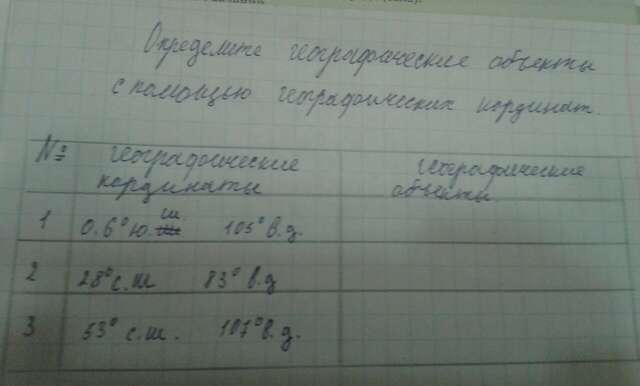 Определите географические объекты
с помощью географических кординат.
№ географические кординаты географические объекты
1 0.6° ю.ш. 105° в.д.
2 28° с.ш 83° в.д
3 53° с.ш. 107° в.д.